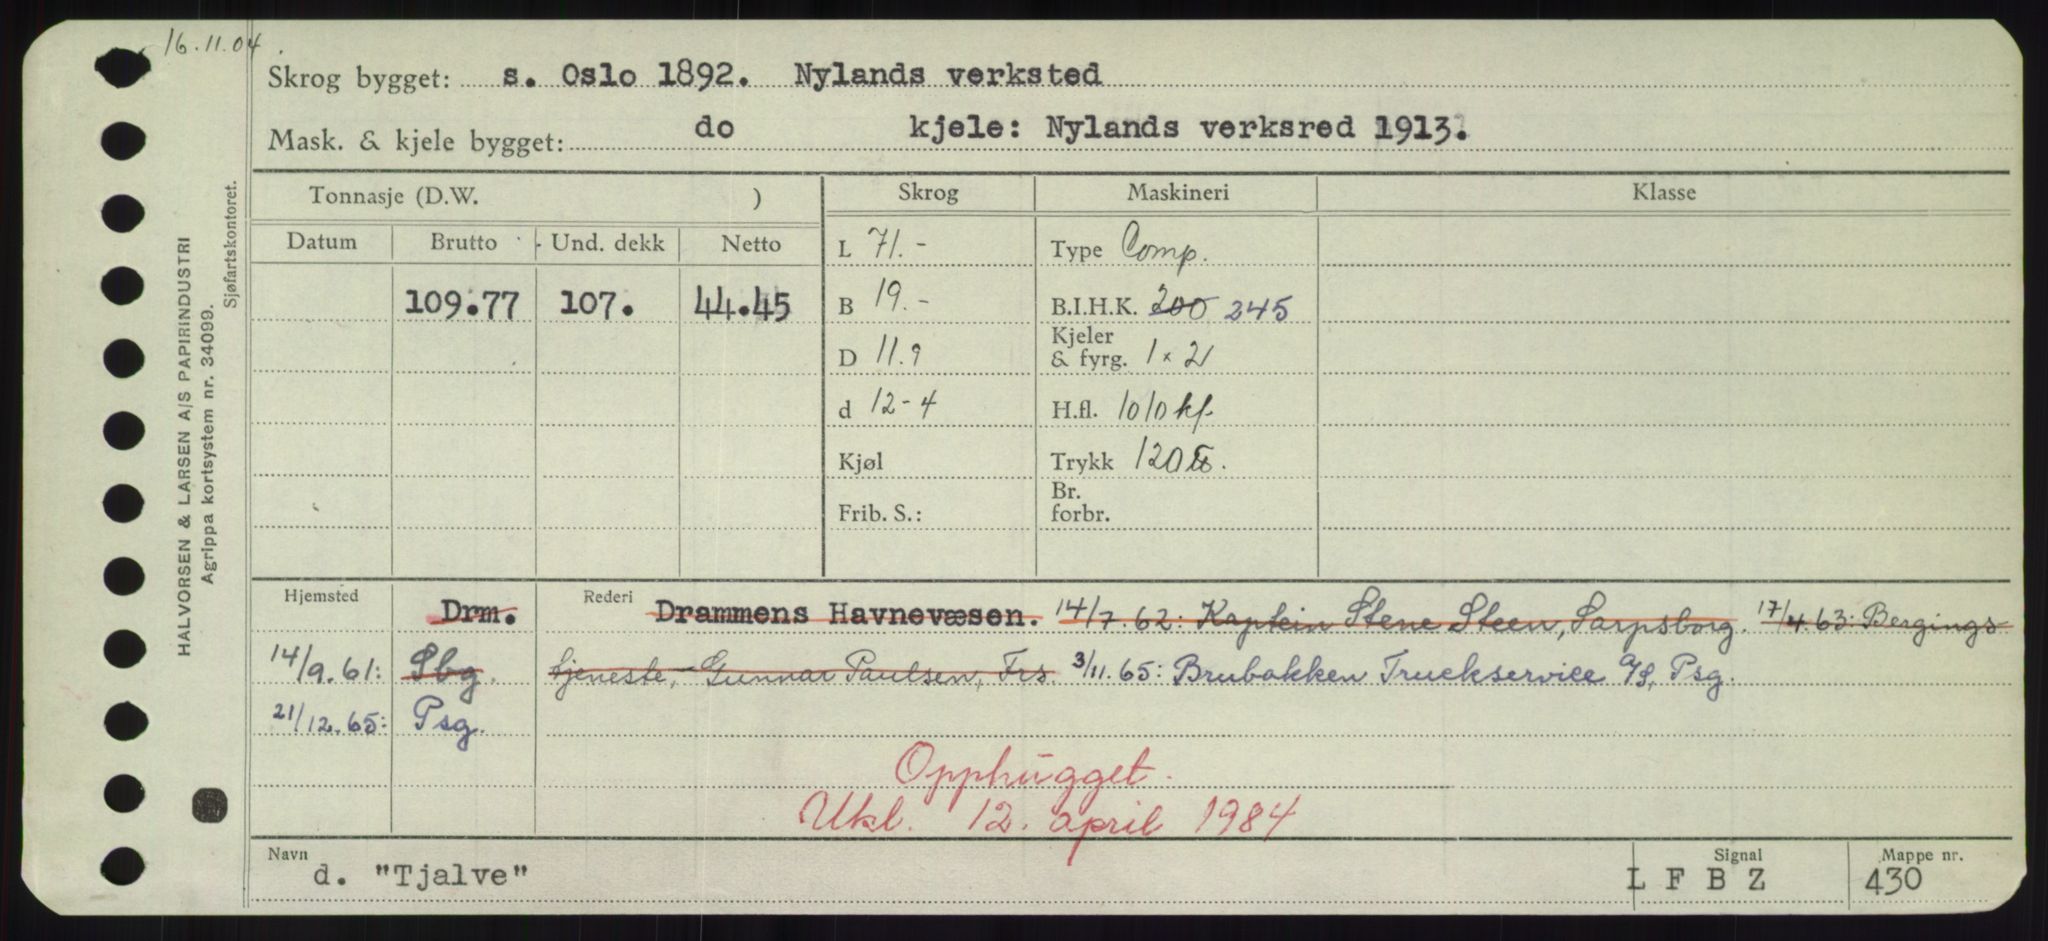 16.11.04.
Skrog bygget: s. Oslo 1892. Nylands verksted
Mask. & kjele bygget: do kjele: Nylands verksred 1913.
Tonnasje (D.W. ) Skrog Maskineri Klasse
Datum Brutto Und. dekk Netto L 71.- Type Comp.
109.77 107. 44.45 B 19.- B.I.H.K. 200 245
D 11.9 Kjeler & fyrg. 1 x 2
d 12-4 H.fl. 1010 kf.
Kjøl Trykk 120 ℔.
Frib. S.: Br. forbr.
Hjemsted Drm. Rederi Drammens Havnevæsen. 14/7.62: Kaptein Stene Steen, Sarpsborg. 17/4.63: Bergings-
14/9.61: Sbg. tjeneste, - Gunnar Paulsen, Frs. 3/11.65: Brubakken Truckservice A/S, Psg.
21/12.65: Psg.
Opphugget.
Utkl. 12. april 1984
Navn d. "Tjalve" Signal L F B Z Mappe nr. 430
HALVORSEN & LARSEN A/S PAPIRINDUSTRI
Agrippa kortsystem nr. 34099.
Sjøfartskontoret.